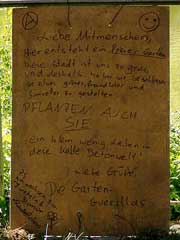 Liebe Mitmenschen,
Hier entsteht ein kleiner Garten
Diese Stadt ist uns zu grau
und deshalb haben wir beschlossen
sie etwas grüner, freundlicher und
bunter zu gestalten.
PFLANZEN AUCH
SIE
ein klein wenig Leben in
diese kalte Betonwelt!
Liebe Grüße,
Die Garten-
Guerillas